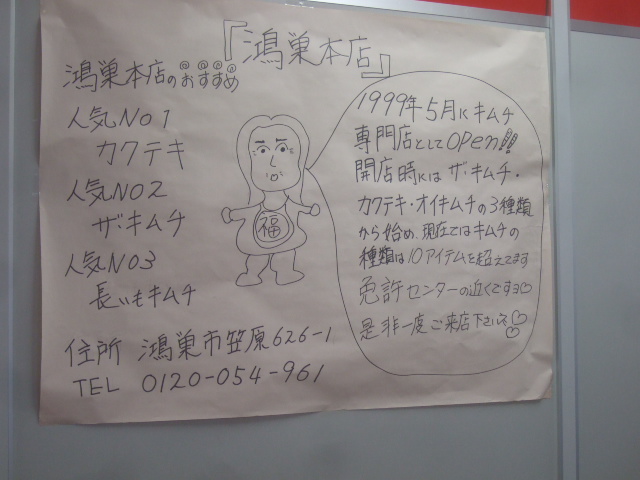 『鴻巣本店』
鴻巣本店のおすすめ
人気No1
カクテキ
人気NO2
ザ・キムチ
人気NO3
長いもキムチ
福
1999年5月にキムチ
専門店としてOPen!!
開店時にはザ・キムチ・
カクテキ・オイキムチの3種類
から始め、現在ではキムチの
種類は10アイテムを超えてます
免許センターの近くですヨ♡
是非一度ご来店下さいネ♡
住所 鴻巣市笠原626-1
TEL 0120-054-961